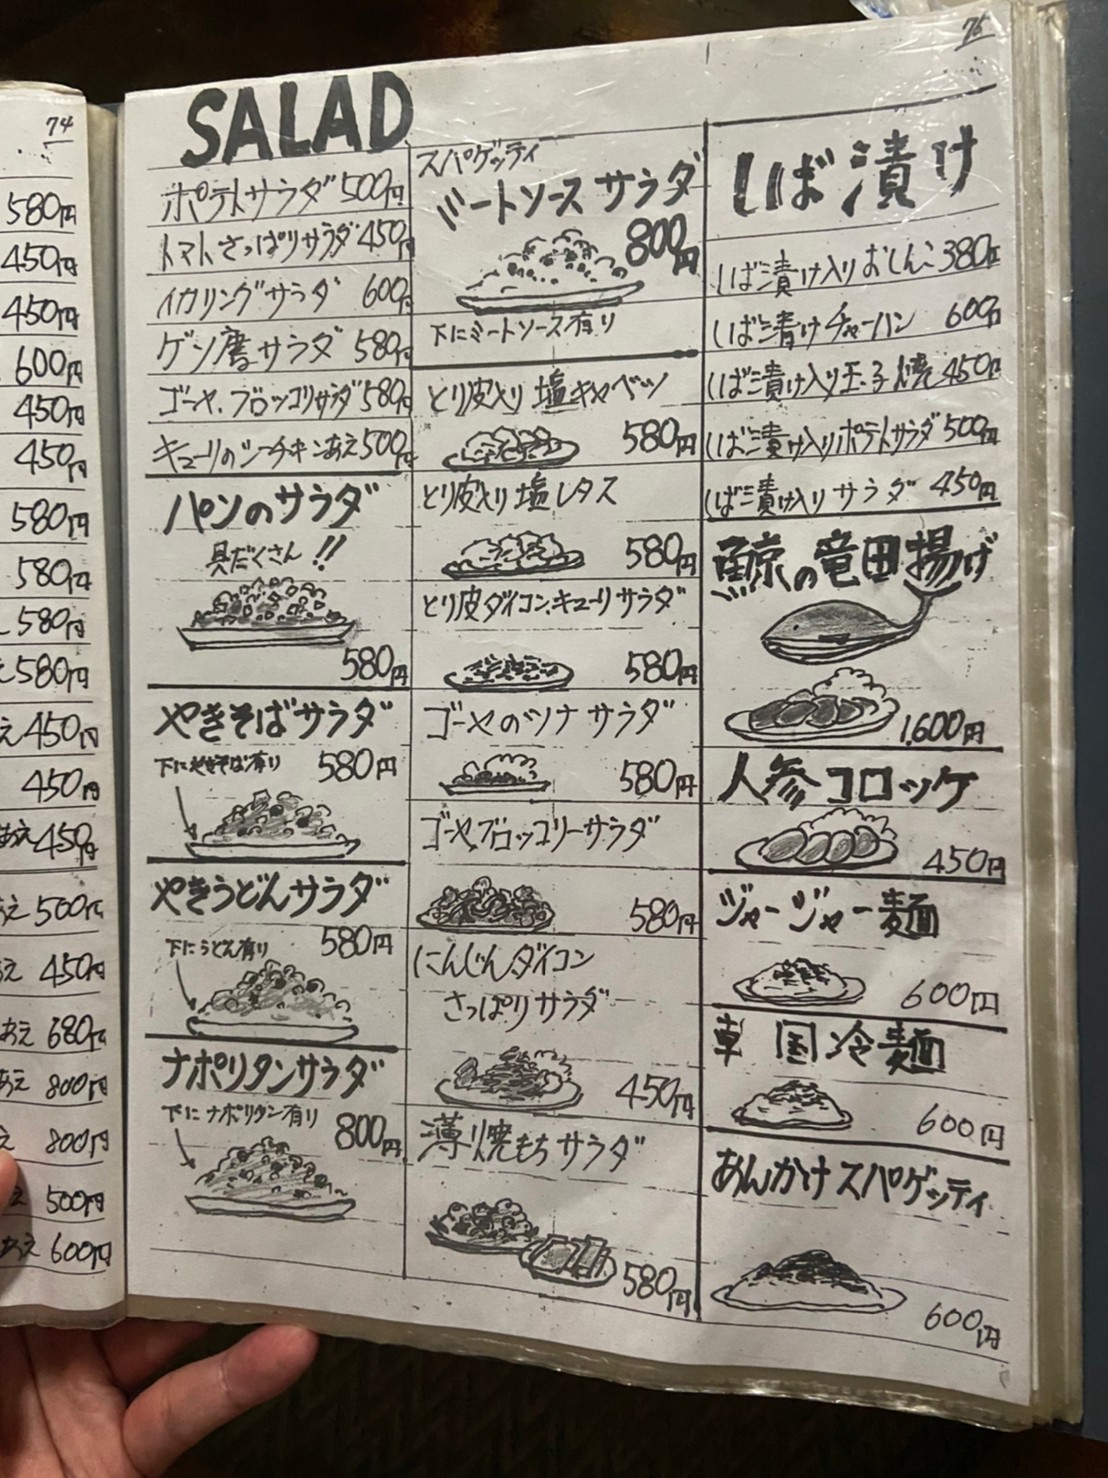 74
580円
450円
450円
600円
450円
450円
580円
580円
580円
え580円
え450円
450円
あえ450円
あえ500円
え 450円
あえ 680円
あえ 800円
え 800円
え 500円
あえ 600円
75
SALAD
ポテトサラダ 500円
トマトさっぱりサラダ 450円
イカリングサラダ 600円
ゲソ唐サラダ 580円
ゴーヤ、ブロッコリサラダ 580円
キューリのシーチキンあえ 500円
パンのサラダ
具だくさん!!
580円
やきそばサラダ
下にやきそば有り 580円
やきうどんサラダ
下にうどん有り 580円
ナポリタンサラダ
下にナポリタン有り 800円
スパゲッティ
ミートソースサラダ
800円
下にミートソース有り
とり皮入り 塩キャベツ
580円
とり皮入り 塩レタス
580円
とり皮ダイコン、キューリサラダ
580円
ゴーヤのツナサラダ
580円
ゴーヤブロッコリーサラダ
580円
にんじん、ダイコン
さっぱりサラダ
450円
薄り焼もちサラダ
580円
しば漬け
しば漬け入りおしんこ 380円
しば漬けチャーハン 600円
しば漬け入り玉子焼 450円
しば漬け入りポテトサラダ 500円
しば漬け入りサラダ 450円
鯨の竜田揚げ
1,600円
人参コロッケ
450円
ジャージャー麺
600円
国冷麺
600円
あんかけスパゲッティ
600円